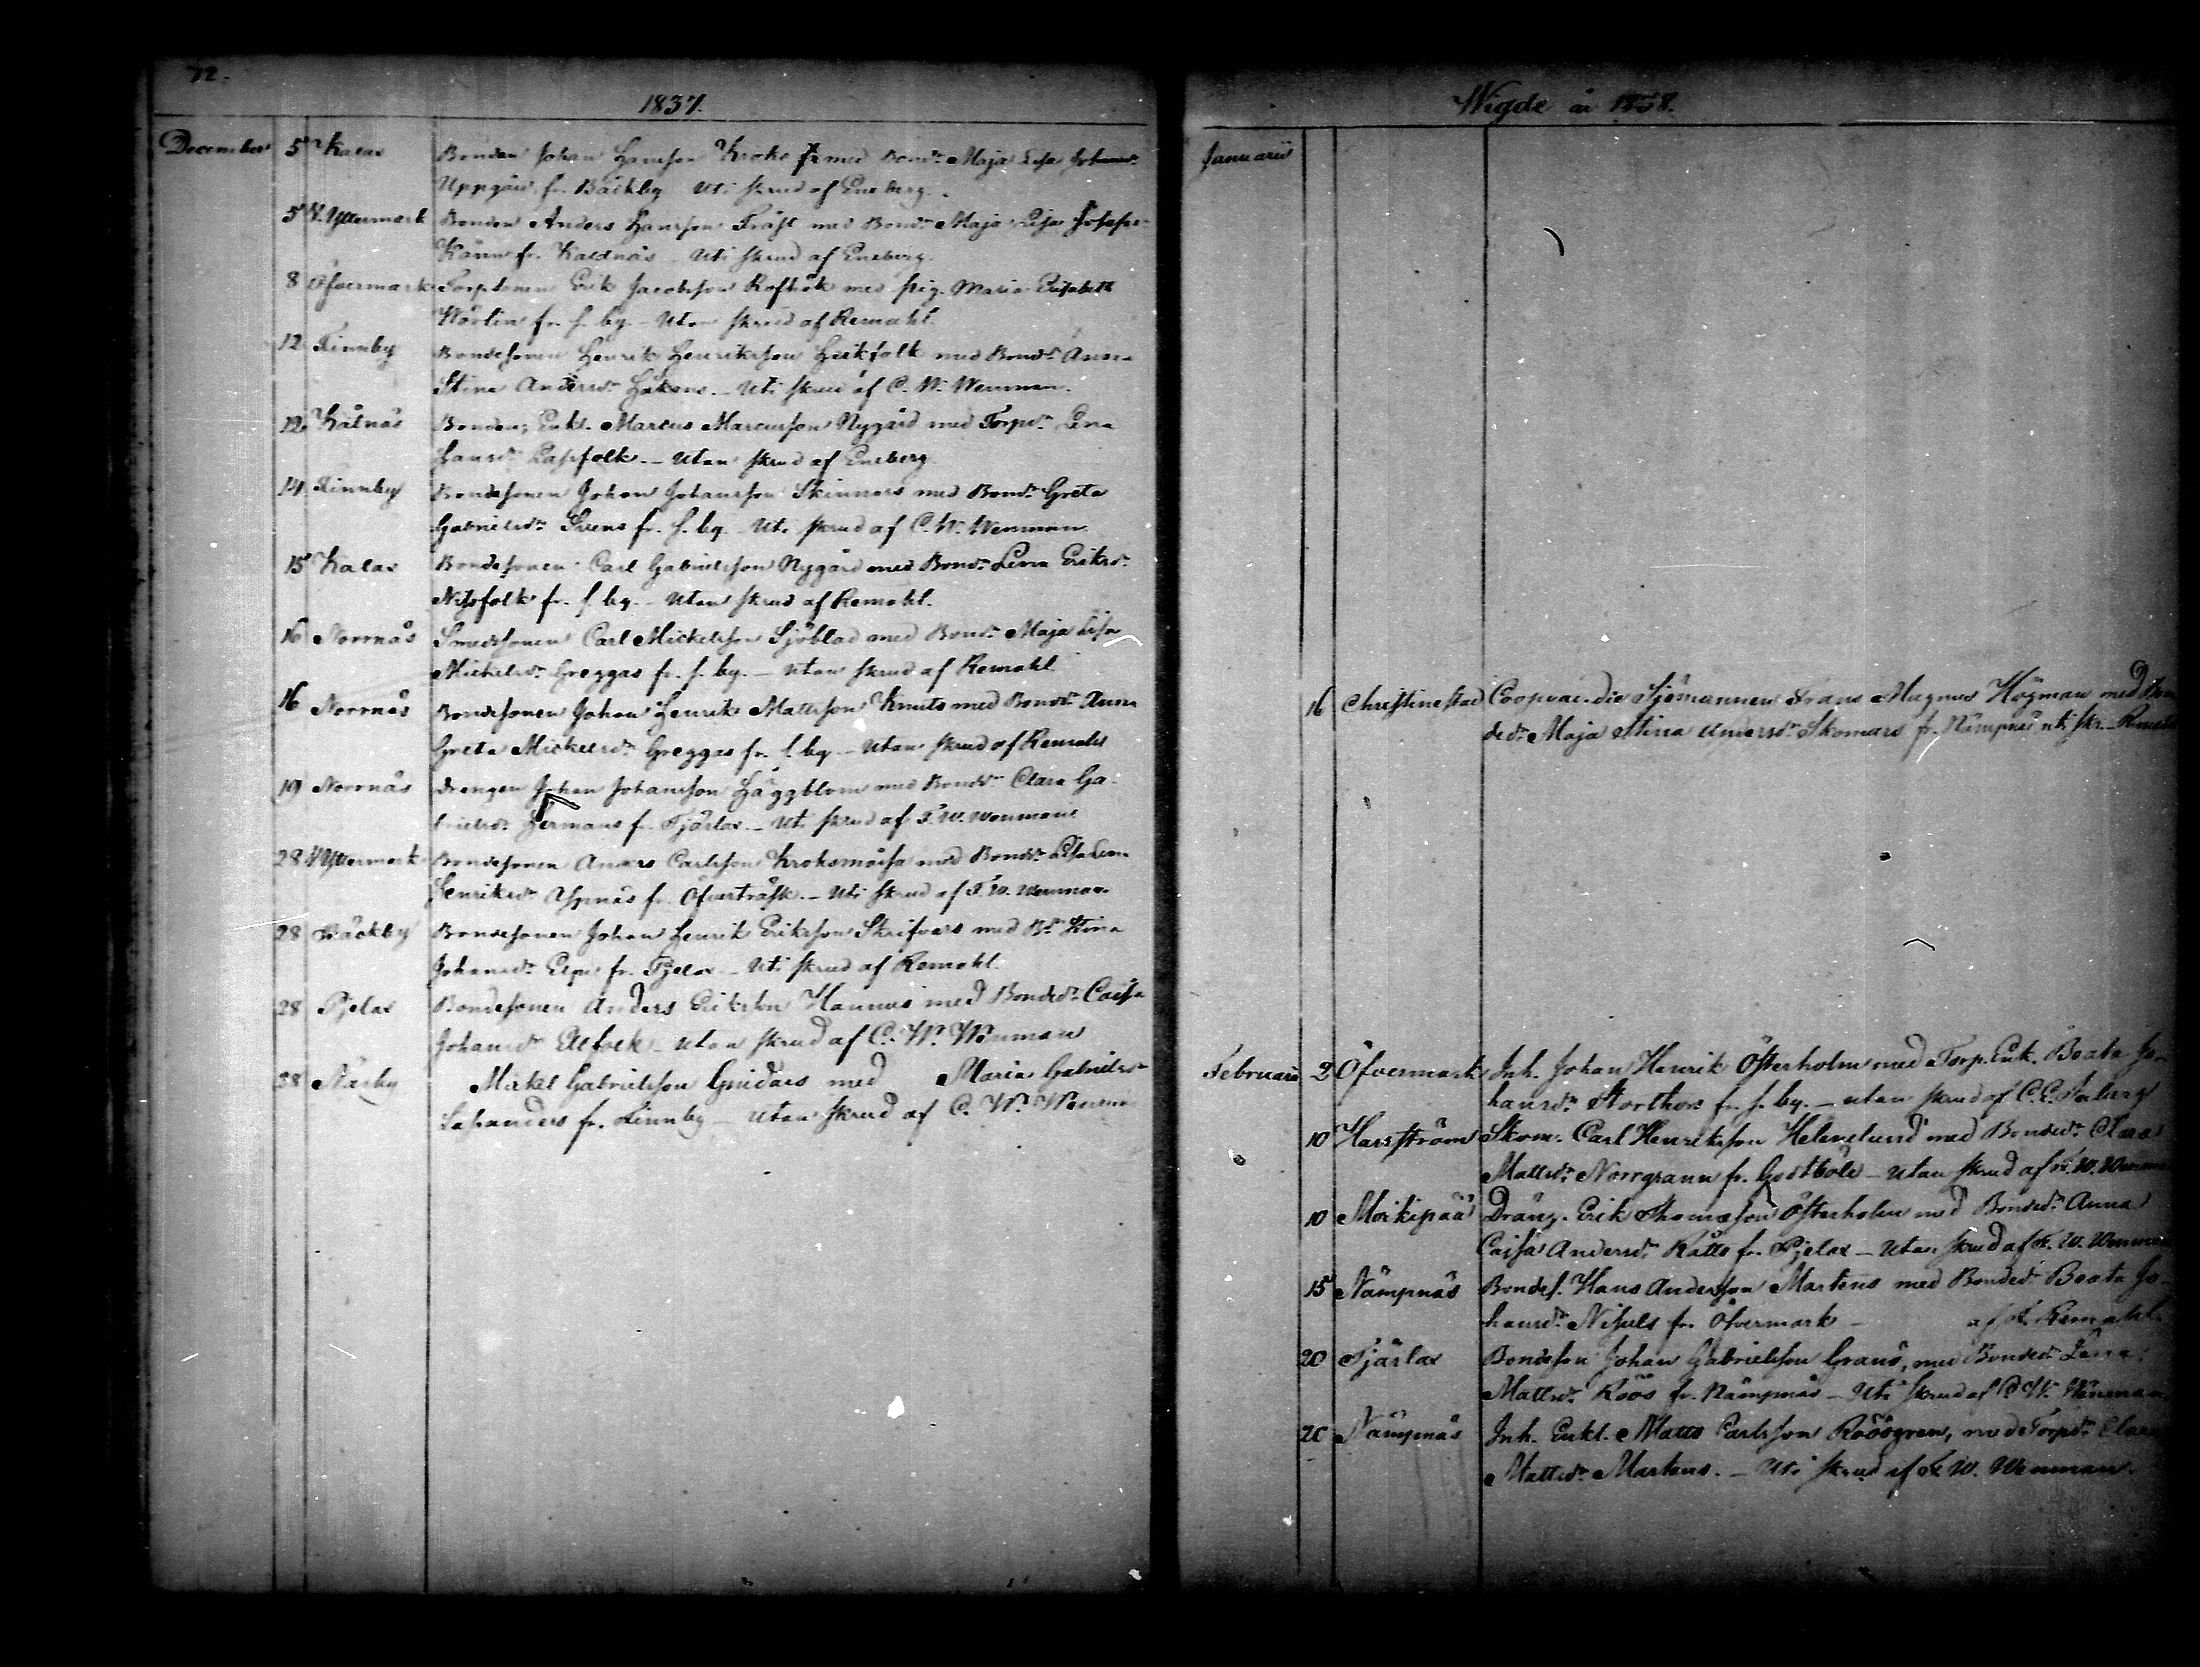 72.
1837.
December 5 Kalax Bonden Johan Hansson Kroks med Bondr Maja Lisa Johansdr
Uppgård fr. Bäckby Uti skrud af Eneberg.
5 Y. Yttermark Bonden Anders Hansson Träsk med Bondr Maja Lisa Josefsdr
fr. Kaldnäs - Uti skrud af Eneberg.
8 Öfvermark Torpsonen Erik Jacobsson Rofhök med pig. Maria Elisabeth
Wörlin fr. s. by. - Utan skrud af Remahl.
12 Finnby Bondesonen Henrik Henriksson Heikfolk med Bondr Anna
Stina Andersdr Håkans. - Uti skrud af C. W. Wenman.
12 Kålnäs Bonden, Enkl. Marcus Marcusson Nygård med Torpdr Lena
Hansdr Lassfolk. - Utan skrud af Eneberg
14 Finnby Bondesonen Johan Johansson Skinnars med Bondr Greta
Gabrielsdr Svens fr. s. by. Uti skrud af C. W. Wenman
15 Kalax Bondesonen Carl Gabrielsson Nygård med Bondr Lena Eriksdr
Nissfolk fr. s. by. - Utan skrud af Remahl.
16 Norrnäs Smedssonen Carl Mickelsson Sjöblad med Bondr Maja Lisa
Michelsdr Greggas fr. s. by. - Utan skrud af Remahl
16 Norrnäs Bondesonen Johan Henrik Mattsson Knuts med Bondr Anna
Greta Mickelsdr Greggas fr. s. by - Utan skrud af Remahl
19 Norrnäs Drengen Johan Johansson Häggblom med Bondr Clara Ga-
brielsdr Hermans fr. Tjärlax. - Uti skrud af F. W. Wenman
28 Y. Yttermark Bondesonen Anders Carlsson Kroksmåssa med Bondr Lisa Lena
Henriksdr fr. Öfverträsk. - Uti skrud af F. W. Wenman
28 Bäckby Bondesonen Johan Henrik Eriksson Skrifvars med Bdr Stina
Johansdr fr. Pjelax - Uti skrud af Remahl.
28 Pjelax Bondesonen Anders Eriksson Hannus med Bondedr Caisa
Johansdr - utan skrud af C. W. Wenman
28 Närby Mickel Gabrielsson Gnidars med Maria Gabrielsdr
Lassanders fr. Finnby - Utan skrud af C. W. Wenman
Wigde år 1838.
Januarii
16 Christinestad Coopvaerdie Sjömannen Frans Magnus Högman med Bon-
dedr Maja Stina Andersdr Skomars fr. Nämpnäs uti skr. - Remahl
Februarii 2 Öfvermark Inh. Johan Henrik Österholm med Torp. Enk. Beata Jo-
hansdr Storthors fr. s. by. - utan skrud af C. E. Eneberg
10 Harrström Skom. Carl Henriksson Helenelund med Bondedr Clara
Mattsdr Norrgrann fr. Gottböle - Utan skrud af F. W. Wenman
10 Moikipää Dräng. Erik Thomasson Österholm med Bondedr Anna
Caisa Andersdr Rätts fr. Pjelax - Utan skrud af F. W. Wenman
15 Nämpnäs Bondes. Hans Andersson Martens med Bondedr Beata Jo-
hansdr Nissils fr. Öfvermark - af F. Remahl.
20 Tjärlax Bondeson Johan Gabrielsson Granö, med Bondedr Lena
Mattsdr Röös fr. Nämpnäs - Uti skrud af C. W. Wenman
20 Nämpnäs Inh. Enkl. Matts Carlsson Röösgren, med Torpdr Clara
Mattsdr Martens. - Uti skrud af F. W. Wenman.